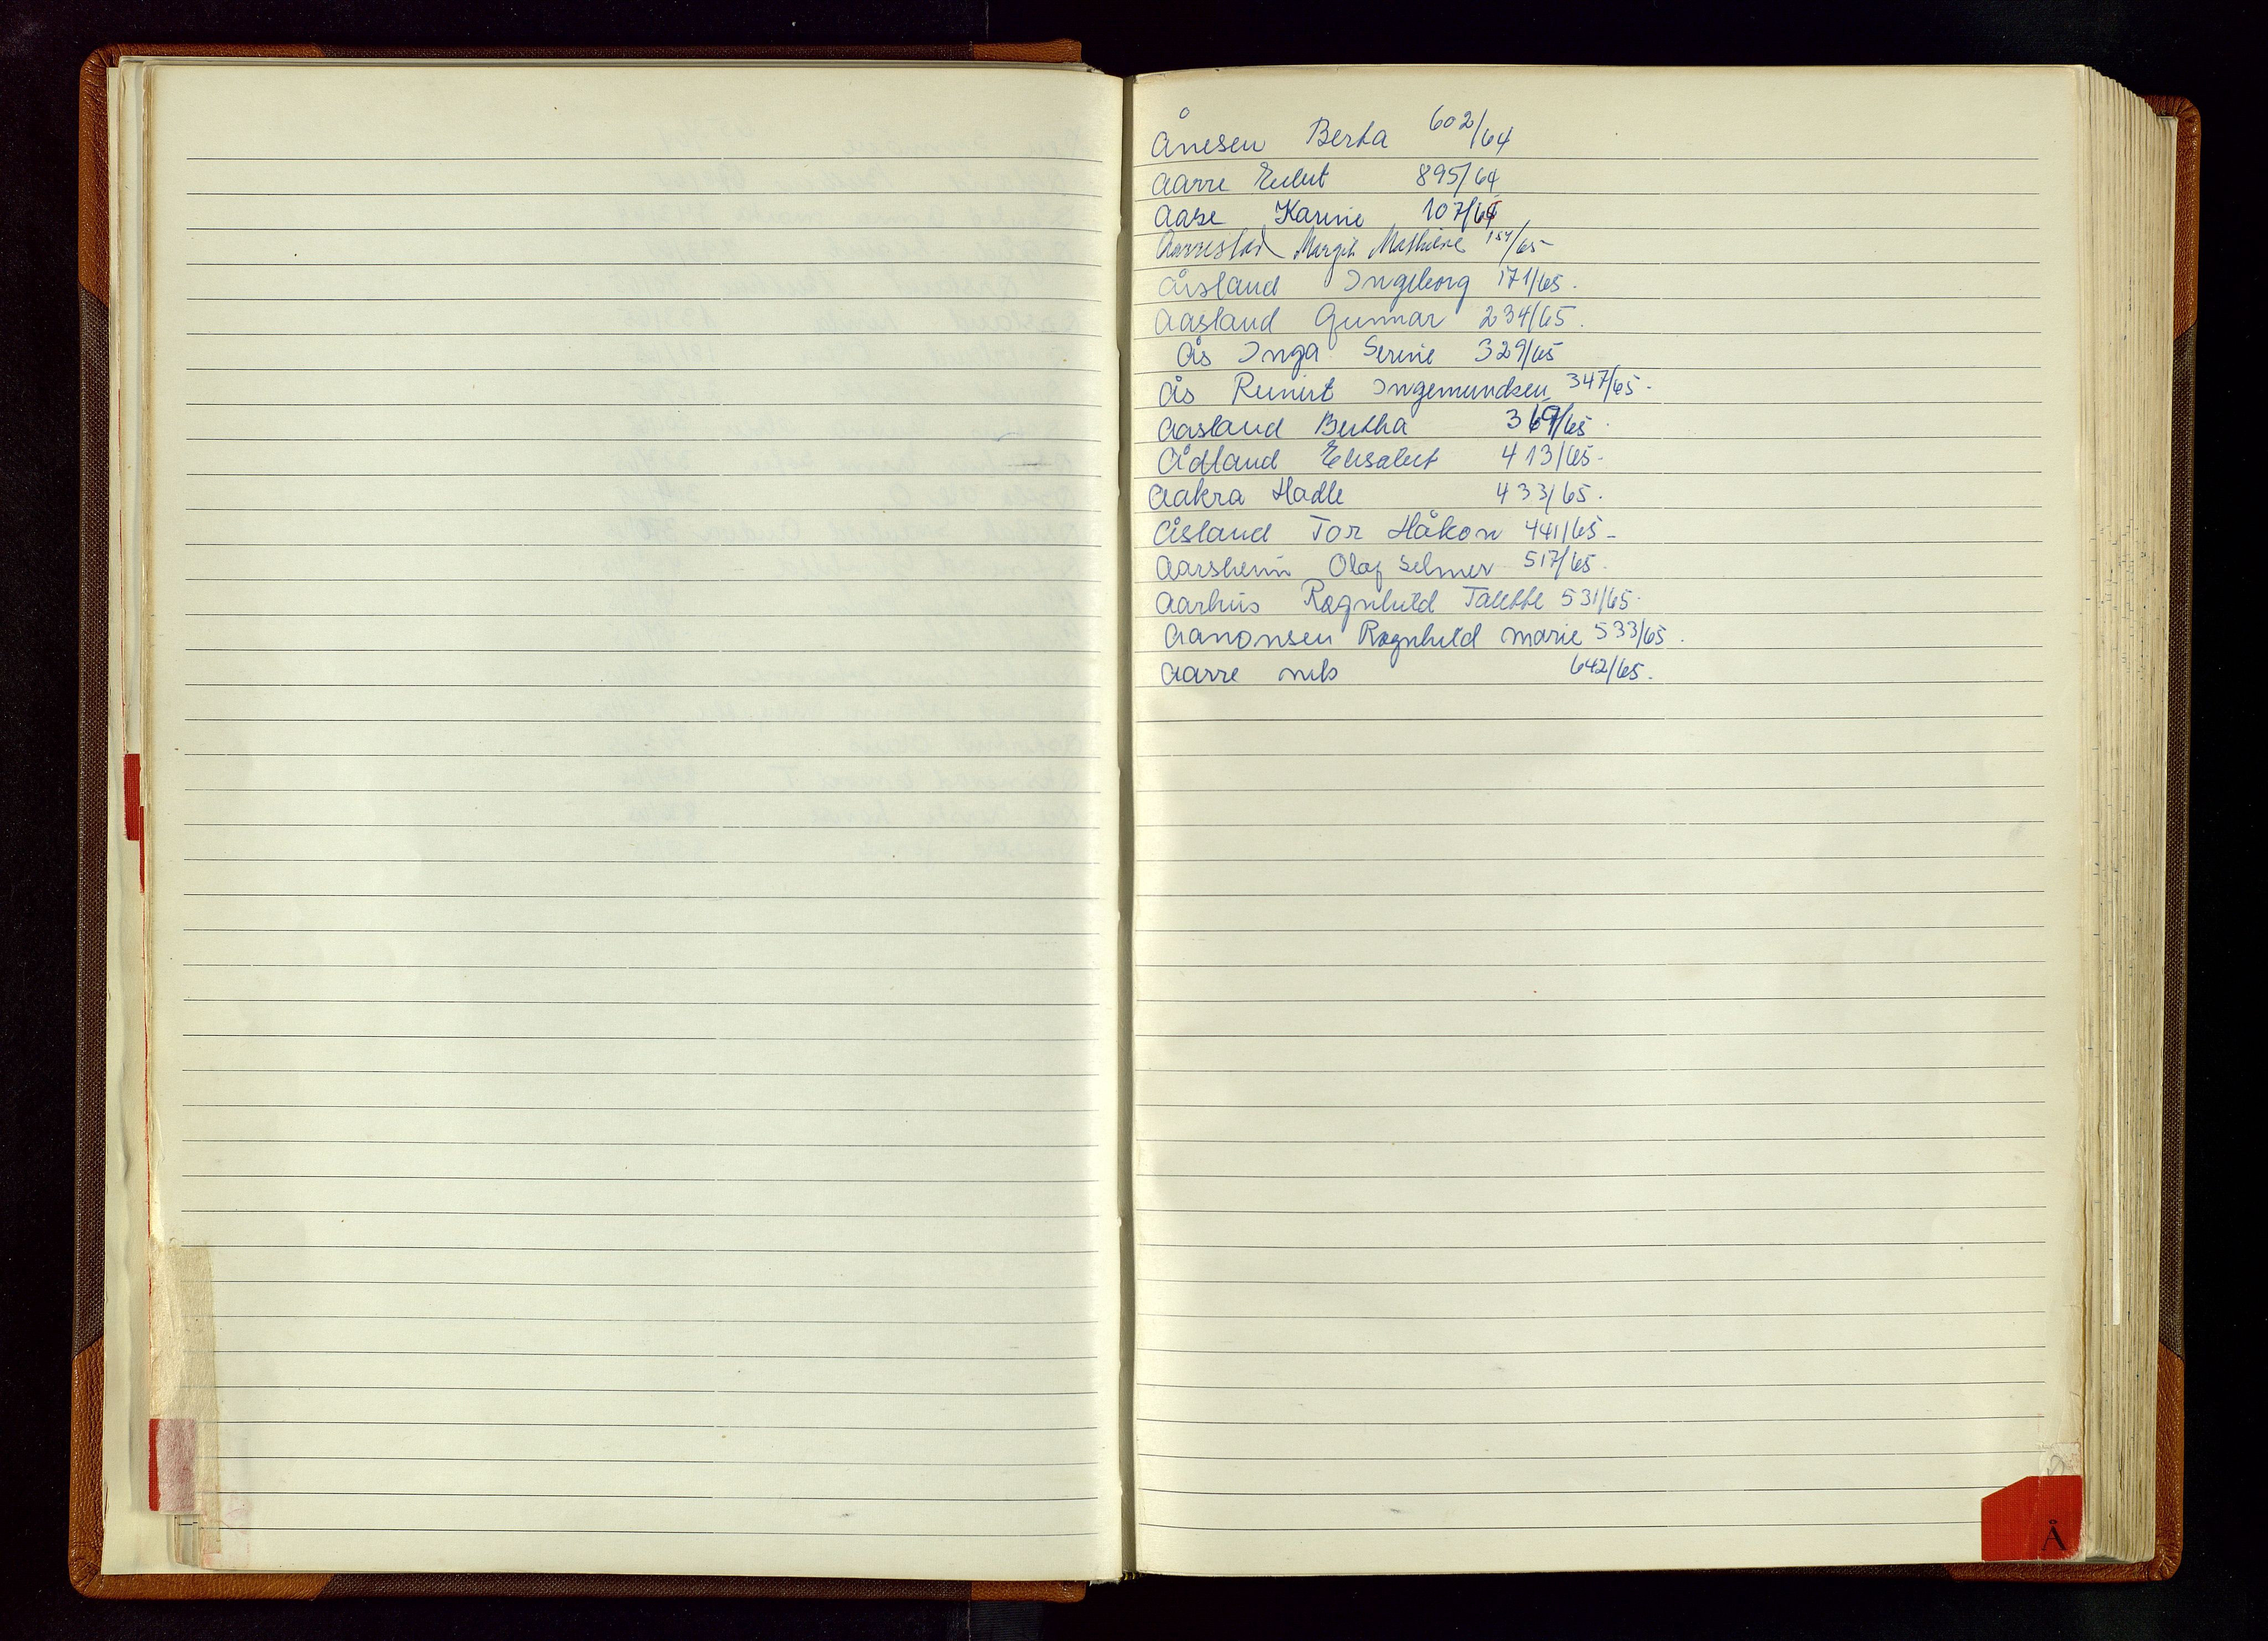 Ånesen Berta 602/64
Aarre Eilert 895/64
Aase Karine 107/64
Aarrestad Margit Mathilde 154/65
Årsland Ingeborg 171/65.
Aasland Gunnar 234/65.
Ås Inga Serine 329/65
Ås Reinert Ingemundsen 347/65.
Aasland Bertha 369/65.
Ådland Elisabet 413/65.
Aakra Hadle 433/65.
Åsland Tor Håkon 441/65.
Aarsheim Olaf Selmer 517/65.
Aarhus Ragnhild Talette 531/65.
Aanonsen Ragnhild Marie 533/65.
Aarre Nils 642/65.
Å